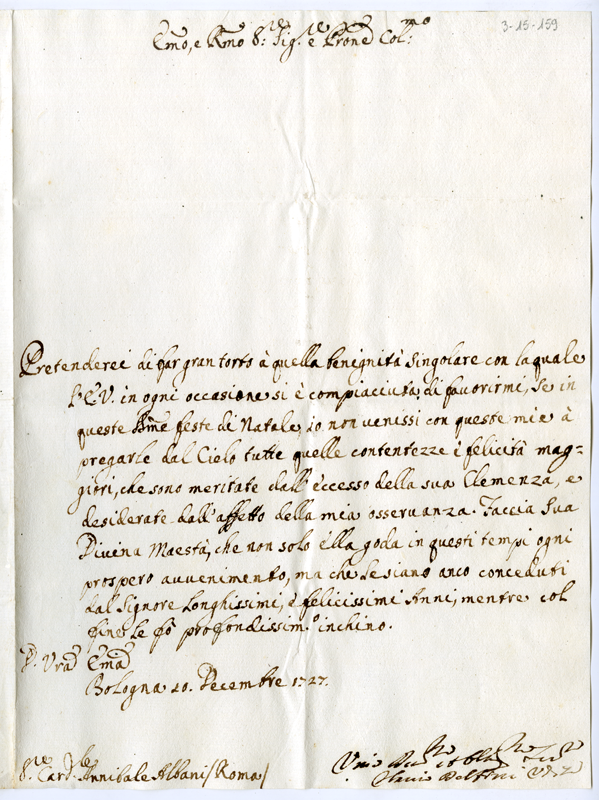 3-15-159
Emo, e Rmo S:r Sig.re e Prone Col:mo
Pretenderei di far gran torto à quella benignità singolare con la quale
l'E.V. in ogni occasione si è compiaciuta di favorirmi, se in
queste SSme feste di Natale io non venissi con queste mie à
pregarle dal Cielo tutte quelle contentezze è felicità mag=
giori, che sono meritate dall'eccesso della sua Clemenza, e
desiderate dall'affetto della mia osservanza. Faccia Sua
Divina Maestà, che non solo ella goda in questi tempi ogni
prospero avvenimento, ma che le siano anco conceduti
dal Signore longhissimi, è felicissimi Anni, mentre col
fine le fò profondissim.o inchino.
D. Vra Ema
Bologna 20. Decembre 1727.
Card. Annibale Albani /Roma/